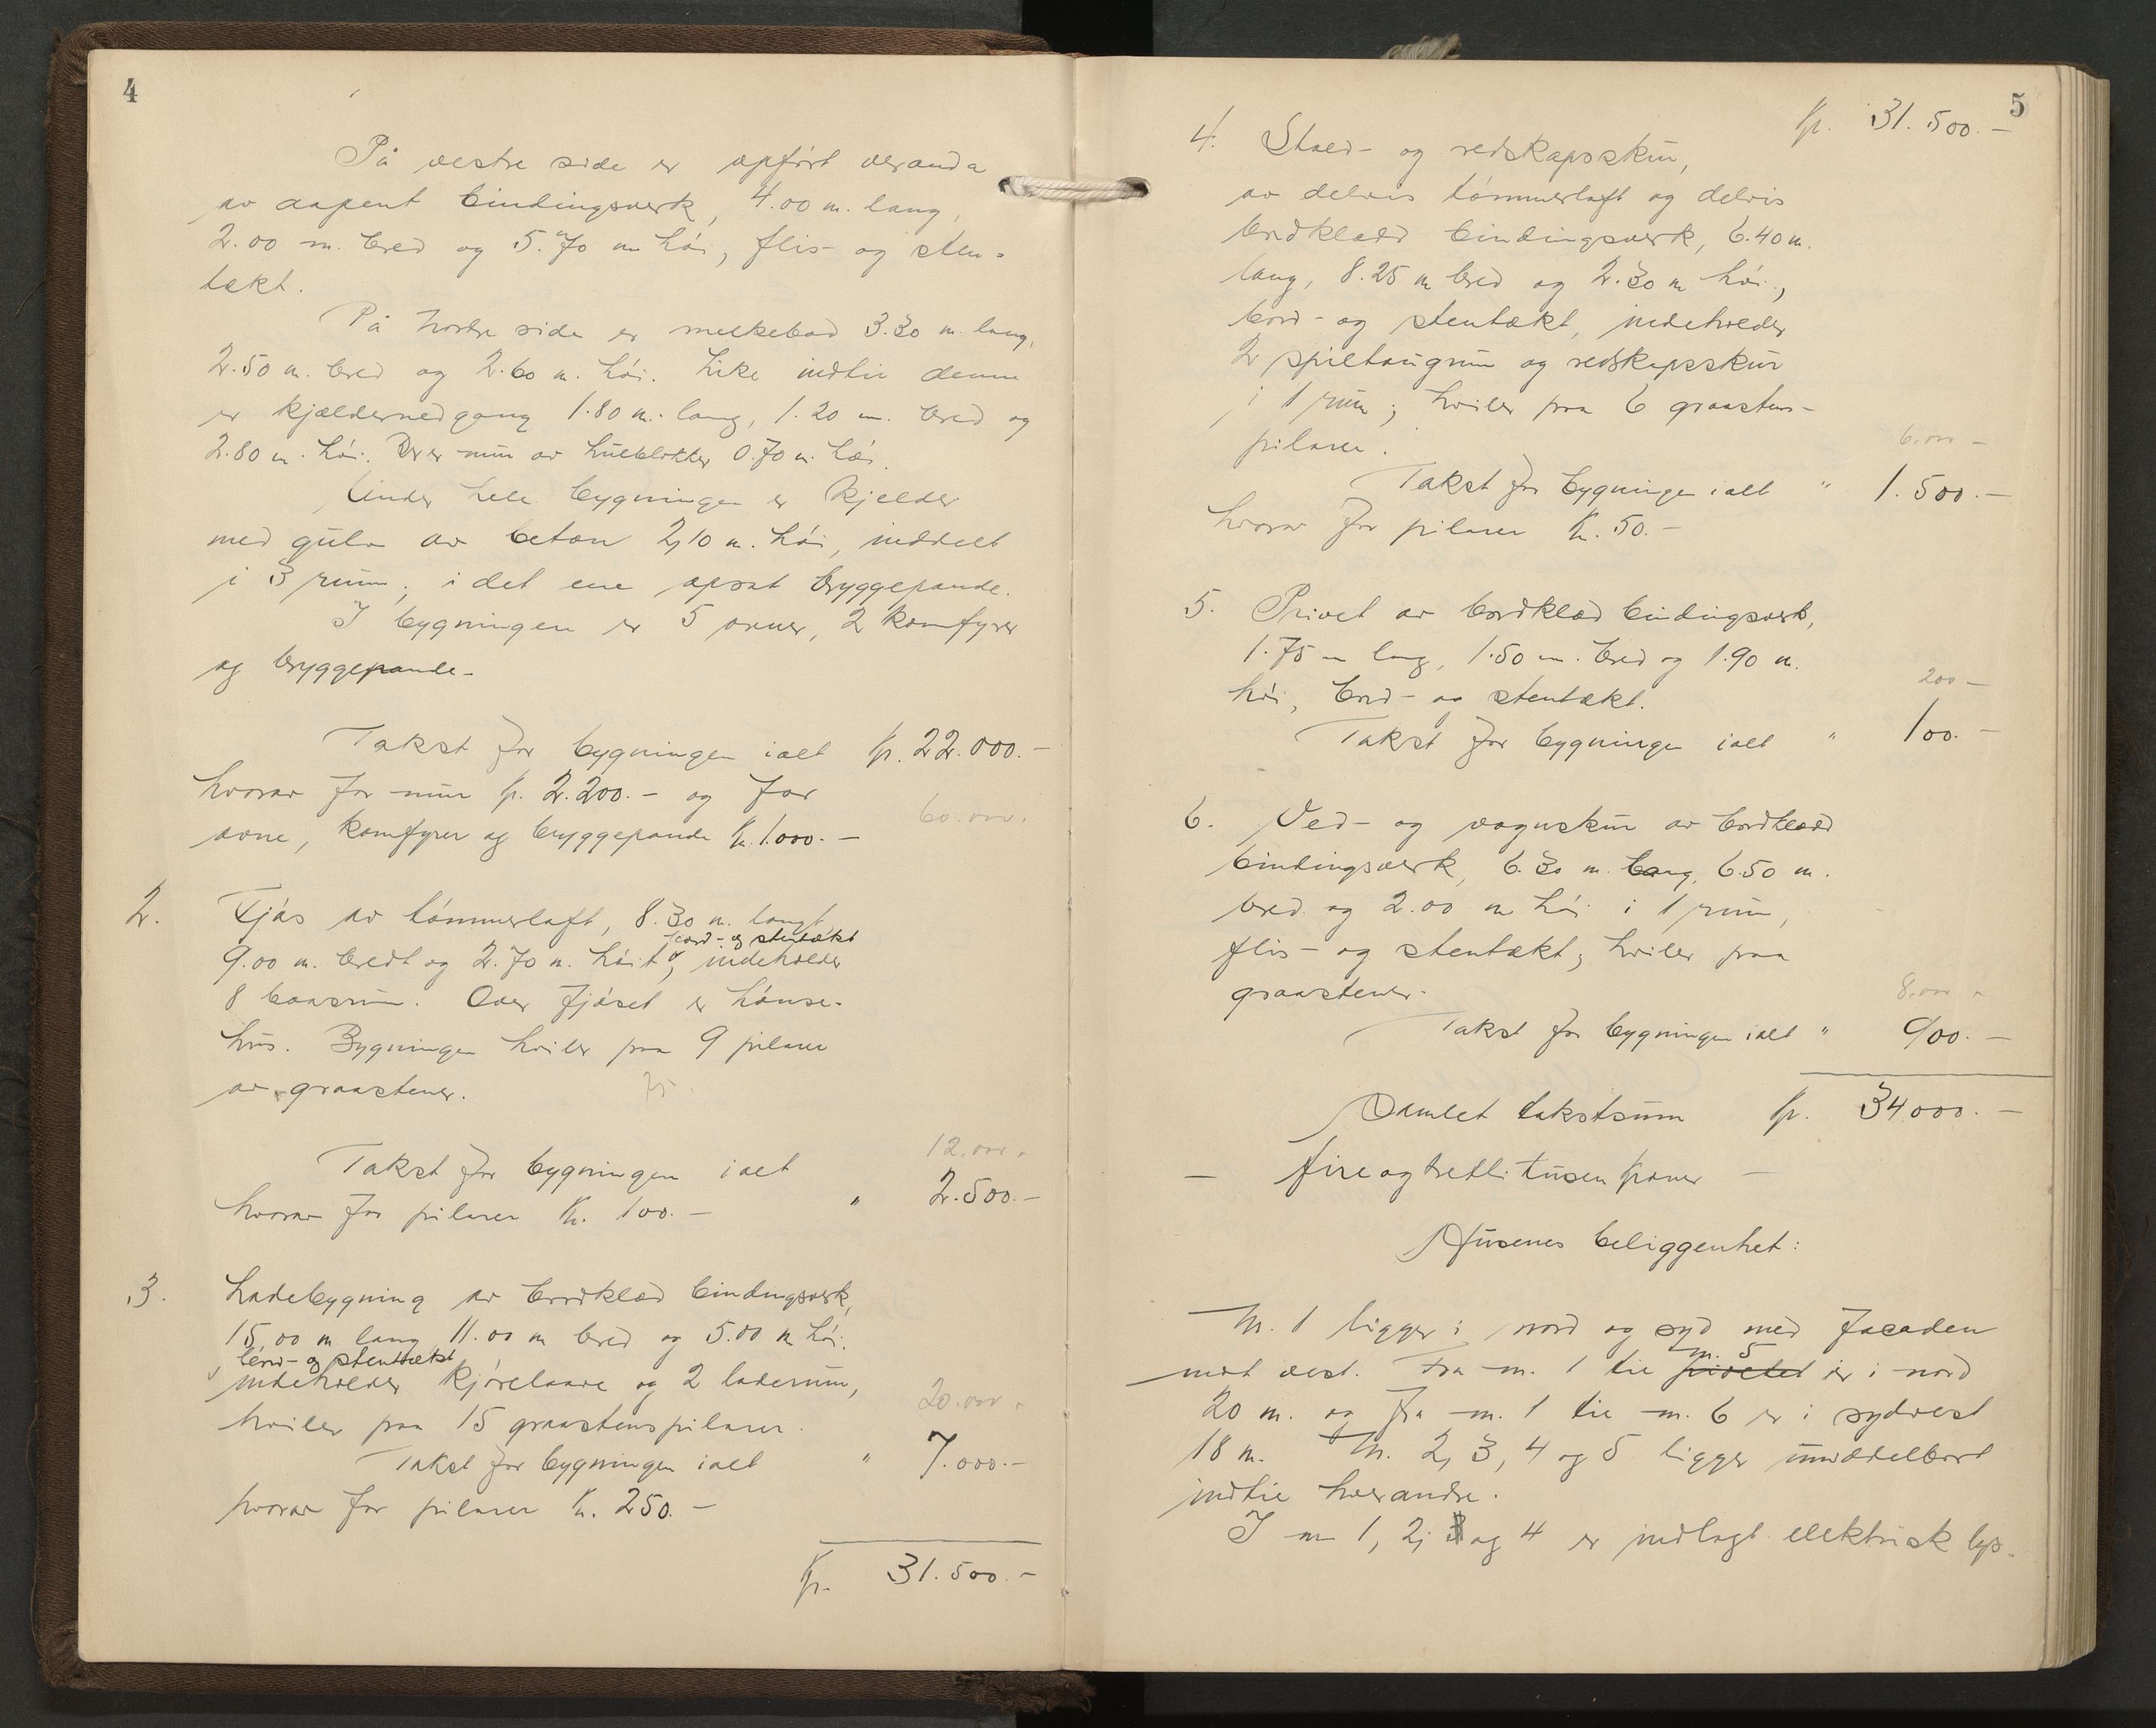 4
På vestre side er opført veranda
av aapent bindingsverk, 4.00 m. lang,
2.00 m. bred og 5.70 m høi, flis- og sten-
tækt.
På nordre side er melkebod 3.30 m. lang,
2.50 m. bred og 2.60 m. høi. Like indtil denne
er kjældernedgang 1.80 m. lang, 1.20 m. bred og
2.80 m. høi. Der er mur av hulblokker 0.70 m. høi.
Under hele bygningen er kjelder
med gulv av beton 2,10 m. høi, inddelt
i 3 rum; i det ene opsat bryggepande.
I bygningen er 5 ovner, 2 komfyrer
og bryggepande.
Takst for bygningen ialt Kr. 22.000.-
hvorav for mur Kr. 2.200.- og for
ovne, komfyrer og bryggepande Kr. 1.000.-
60.000.
2. Fjøs av tømmerlaft, 8.30 m. langt,
bord- og stentækt
9.00 m. bredt og 2.70 m. høit, indeholder
8 baasrum. Over fjøset er hønse-
hus. Bygningen hviler paa 9 pilarer
av graastener.
75.
12.000.-
Takst for bygningen ialt
hvorav for pilarer Kr. 100.- " 2.500.-
3. Ladebygning av bordklæd bindingsverk,
15,00 m lang 11.00 m bred og 5.00 m høi.
bord- og stentækt
indeholder kjørelaave og 2 laderum,
20.000.-
hviler paa 15 graastenspilarer.
Takst for bygningen ialt " 7.000.-
hvorav for pilarer Kr. 250.-
Kr. 31.500.-
5
Kr. 31.500.-
4. Stald- og redskapsskur,
av delvis tømmerlaft og delvis
bordklædd bindingsverk, 6.40 m.
lang, 8.25 m bred og 2.30 m høi,
bord- og stentækt, indeholder
2 spiltaugrum og redskapsskur
i 1 rum; hviler paa 6 graastens-
pilarer.
6.000 -
Takst for bygningen ialt " 1.500.-
hvorav for pilarer Kr. 50.-
5. Privet av bordklæd bindingsverk,
1.75 m lang, 1.50 m. bred og 1.90 m.
høi, bord- og stentækt.
200 -
Takst for bygningen ialt " 100.-
6. Ved- og vognskur av bordklædd
bindingsverk, 6.30 m. lang, 6.50 m.
bred og 2.00 m høi i 1 rum,
flis- og stentækt; hviler paa
graastener.
8.000 -
Takst for bygningen ialt " 900.-
Samlet takstsum Kr. 34000.-
- fire og tretti tusen kroner -
Husenes beliggenhet:
Nr. 1 ligger i nord og syd med facaden
nr. 5
mot vest. Fra nr. 1 til privetet er i nord
20 m. og fra nr. 1 til nr. 6 er i sydvest
18 m. Nr. 2, 3, 4 og 5 ligger umiddelbart
indtil hverandre.
I nr 1, 2, 3 og 4 er indlagt elektrisk lys.